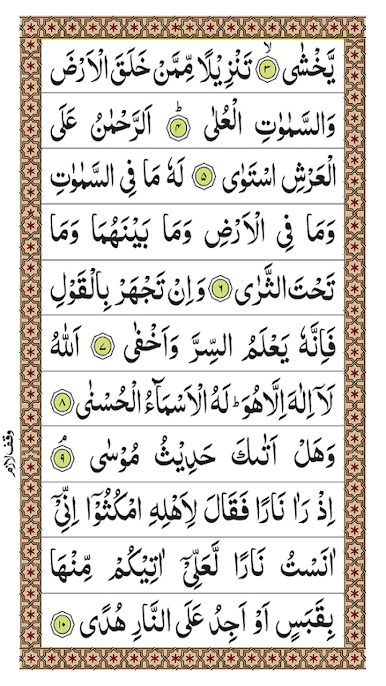 يَّخْشٰى ۙ‏ ﴿۳﴾ تَنْزِيْلًا مِّمَّنْ خَلَقَ الْاَرْضَ
وَالسَّمٰوٰتِ الْعُلٰى ؕ‏ ﴿۴﴾ اَلرَّحْمٰنُ عَلَى
الْعَرْشِ اسْتَوٰى‏ ﴿۵﴾ لَهٗ مَا فِى السَّمٰوٰتِ
وَمَا فِى الْاَرْضِ وَمَا بَيْنَهُمَا وَمَا
تَحْتَ الثَّرٰى‏ ﴿۶﴾ وَاِنْ تَجْهَرْ بِالْقَوْلِ
فَاِنَّهٗ يَعْلَمُ السِّرَّ وَاَخْفٰى‏ ﴿۷﴾ اَللّٰهُ
لَاۤ اِلٰهَ اِلَّا هُوَ‌ؕ لَهُ الْاَسْمَآءُ الْحُسْنٰى‏ ﴿۸﴾
وَهَلْ اَتٰٮكَ حَدِيْثُ مُوْسٰى‌ۘ‏ ﴿۹﴾
وقف لازم
اِذْ رَاٰ نَارًا فَقَالَ لِاَهْلِهِ امْكُثُوْۤا اِنِّىْۤ
اٰنَسْتُ نَارًا لَّعَلِّىْۤ اٰتِيْكُمْ مِّنْهَا
بِقَبَسٍ اَوْ اَجِدُ عَلَى النَّارِ هُدًى‏ ﴿۱۰﴾